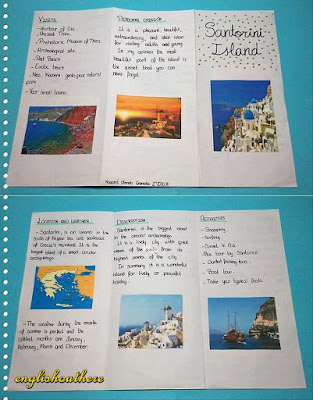 VISITS
- Harbour of Gia.
- Ancient Thira.
- Prehistoric Museum of Thira.
- Archaeological site
- Red Beach
- Exotic beach
- Nea Kameni geological natural park.
- Four small towns.
PERSONAL OPINION
It is a pleasant, beautiful,
extraordinary, and ideal island
for visiting adults and young.
In my opinion the most
beautiful part of the island is
the sunset that you can
never forget.
Santorini
Island
LOCATION AND WEATHER
- Santorini, is an island in the
south of Aegean sea and southeast
of Greece's mainland. It is the
largest island of a small circular
archipelago.
- The weather during the months
of summer is perfect and the
coldest months are January,
February, March and December.
DESCRIPTION
Santorini, is the biggest island
in the circular archipelago.
It is a lively city with great
views of the
highest parts of the city.
In summary, it is a wonderful
island for lively or peaceful
holiday.
ACTIVITIES
- Shopping
- Surfing
- Sunset in Oia.
- Bus tour by Santorini
- Guided fishing tours.
- Boat tour.
- Taste your typical foods.
englishouthere